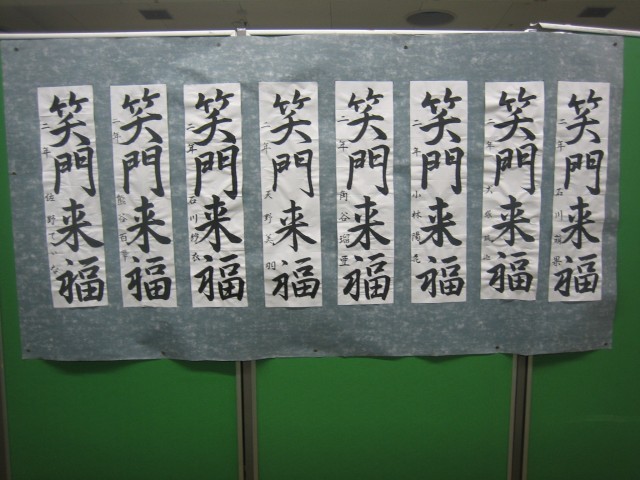 笑門来福
二年 石川
笑門来福
二年
笑門来福
二年 小林陽
笑門来福
二年 角谷瑠亜
笑門来福
二年 天野美羽
笑門来福
二年 石川紗衣
笑門来福
二年 熊谷百華
笑門来福
二年 佐野